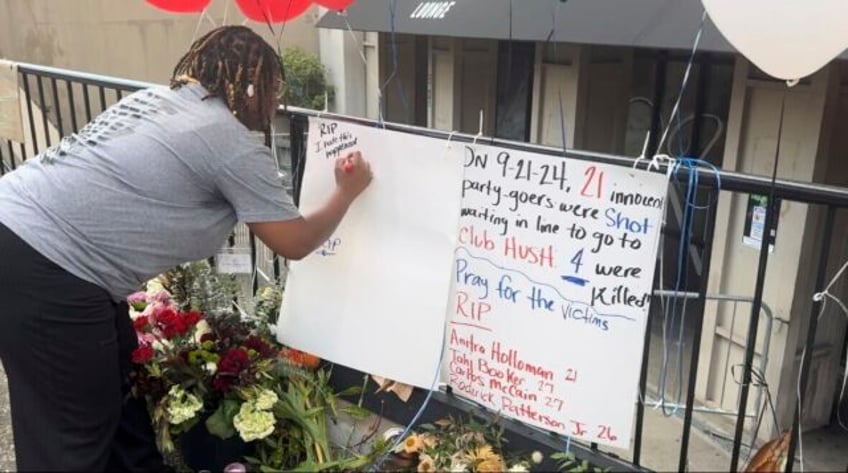 LOUNGE
RIP
I hate this
happened
RIP
ON 9-21-24, 21 innocent
party-goers were shot
waiting in line to go to
Club HUSH. 4 were
Killed!!
Pray for the victims
RIP
Anitra Holloman 21
Tahj Booker 27
Carlos McCain 27
Roderick Patterson Jr 26